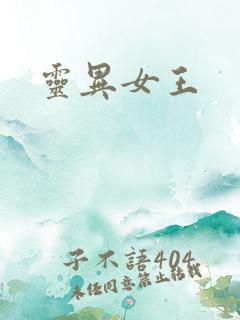 靈異女王
子不語404
未經同意禁止轉載